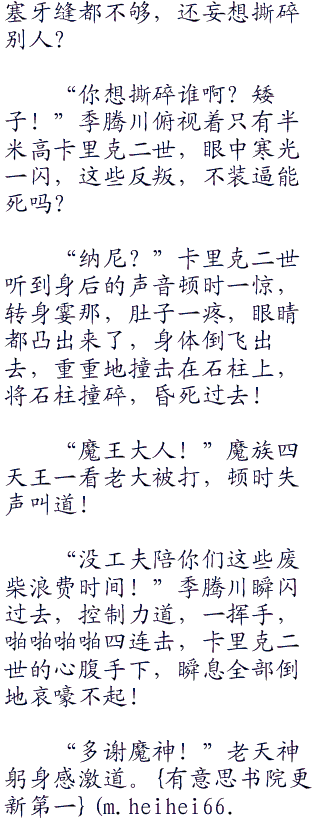 塞牙缝都不够，还妄想撕碎
别人？
“你想撕碎谁啊？矮
子！”季腾川俯视着只有半
米高卡里克二世，眼中寒光
一闪，这些反叛，不装逼能
死吗？
“纳尼？”卡里克二世
听到身后的声音顿时一惊，
转身霎那，肚子一疼，眼睛
都凸出来了，身体倒飞出
去，重重地撞击在石柱上，
将石柱撞碎，昏死过去！
“魔王大人！”魔族四
天王一看老大被打，顿时失
声叫道！
“没工夫陪你们这些废
柴浪费时间！”季腾川瞬闪
过去，控制力道，一挥手，
啪啪啪啪四连击，卡里克二
世的心腹手下，瞬息全部倒
地哀嚎不起！
“多谢魔神！”老天神
躬身感激道。{有意思书院更
新第一}(m.heihei66.